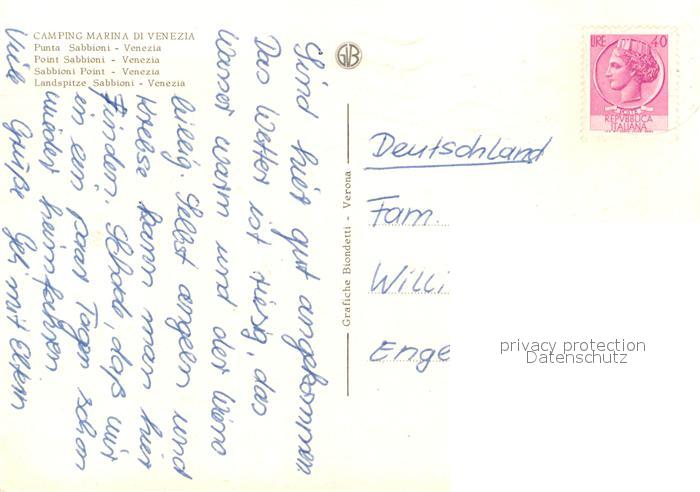 CAMPING MARINA DI VENEZIA
Punta Sabbioni - Venezia
Point Sabbioni - Venezia
Sabbioni Point - Venezia
Landspitze Sabbioni - Venezia
Sind hier gut angekommen
Das Wetter ist riesig, das
Wasser warm und der Wein
billig. Selbst angeln und
Krebse kann man hier
finden. Schade, daß wir
in ein paar Tagen schon
wieder heimfahren
Viele Grüße mit Eltern
GB
Grafiche Biondetti - Verona
LIRE 40
POSTE
REPVBBLICA
ITALIANA
Deutschland
Fam.
Willi
Enge
privacy protection
Datenschutz